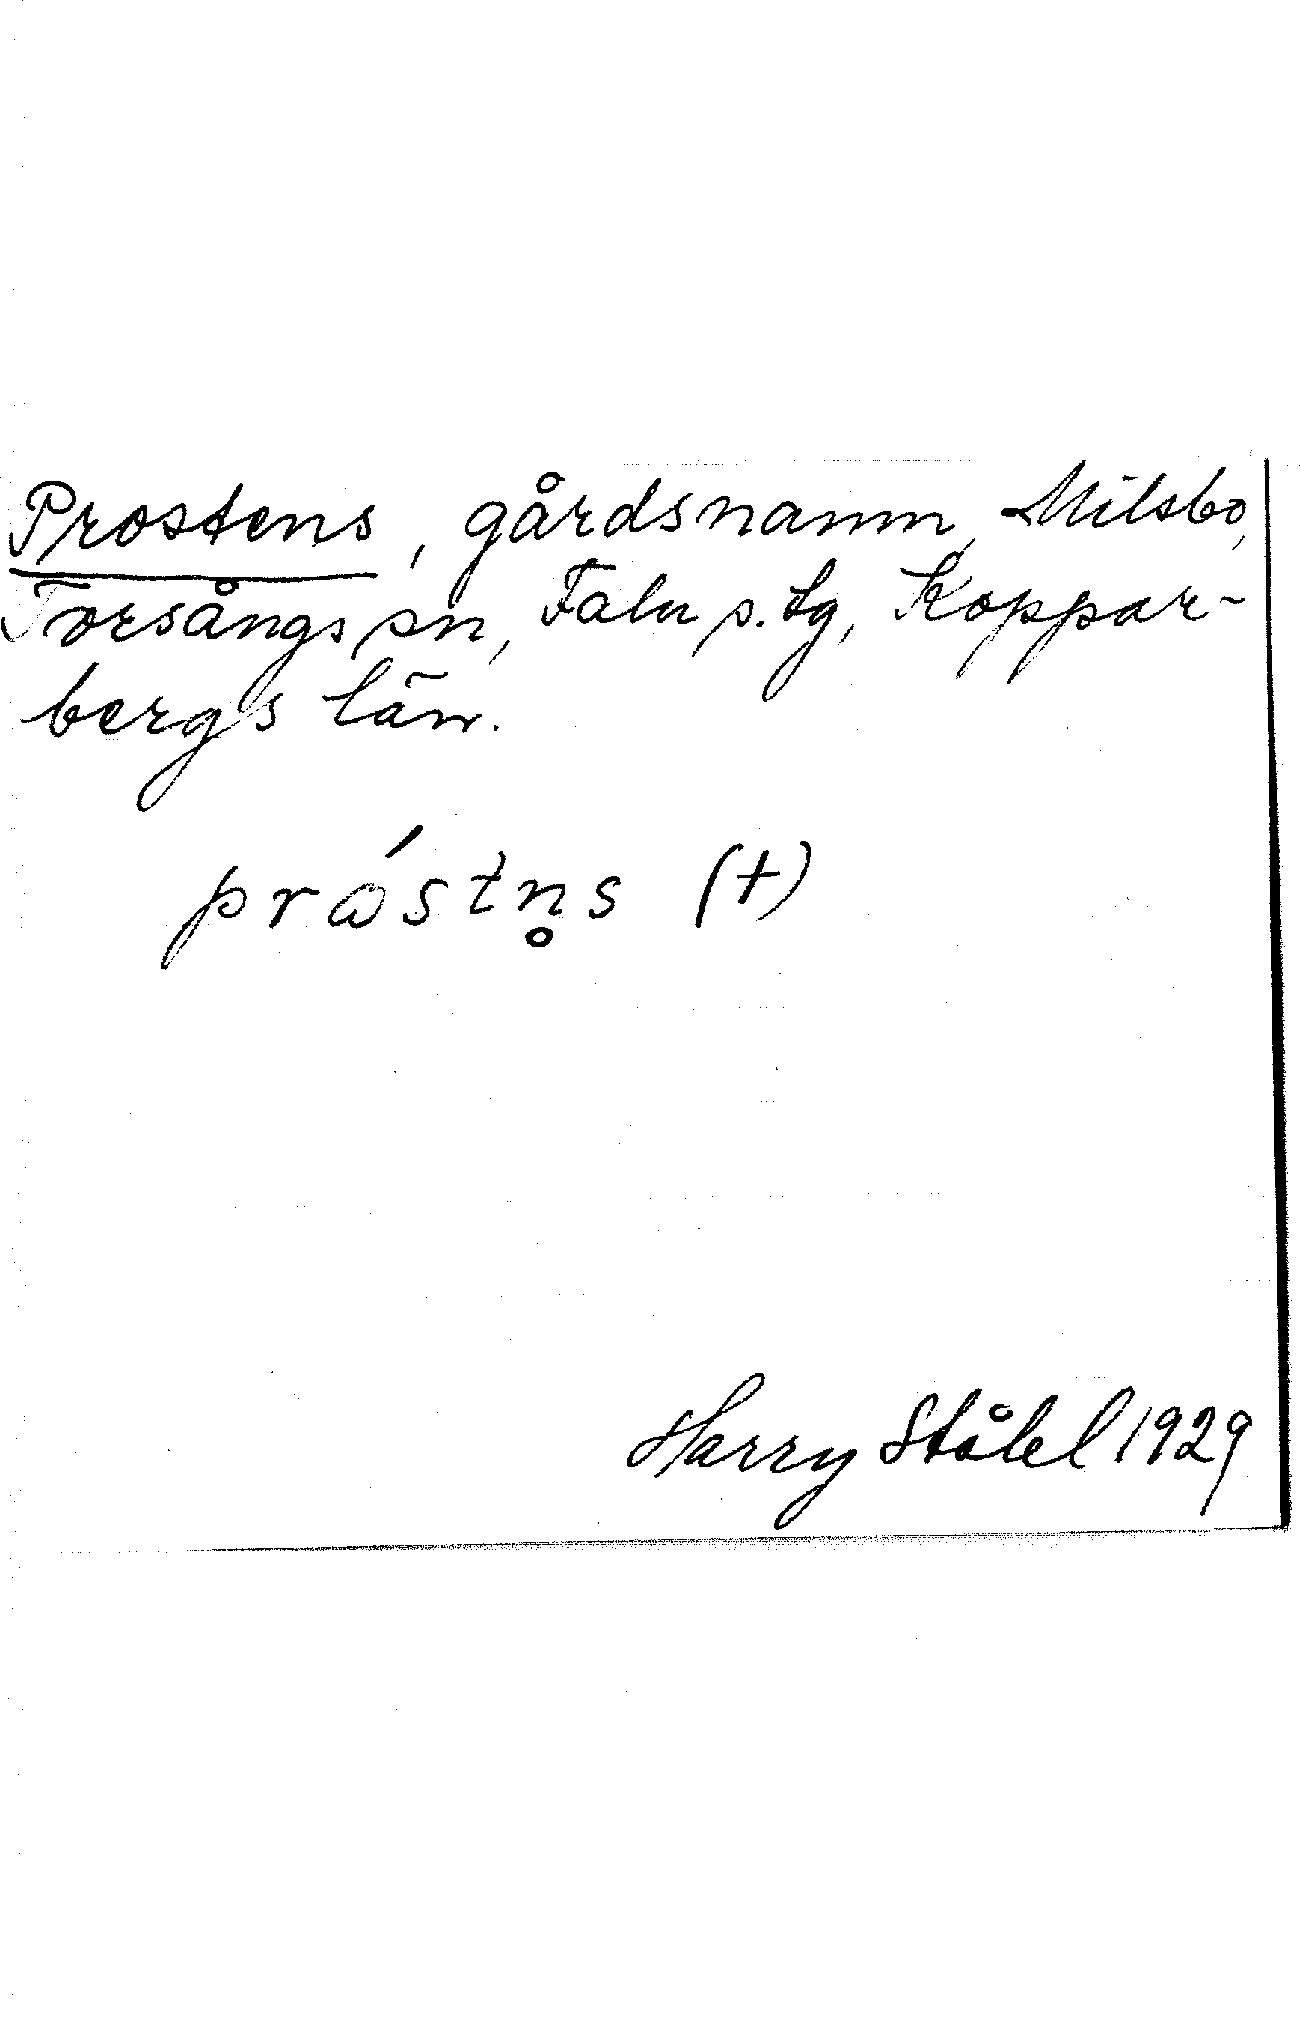 Prostens, gårdsnamn, Milsbo,
Torsångs sn, Falu s. tg, Koppar-
bergs län.
pråstn̥s (+)
Harry Ståhl 1929